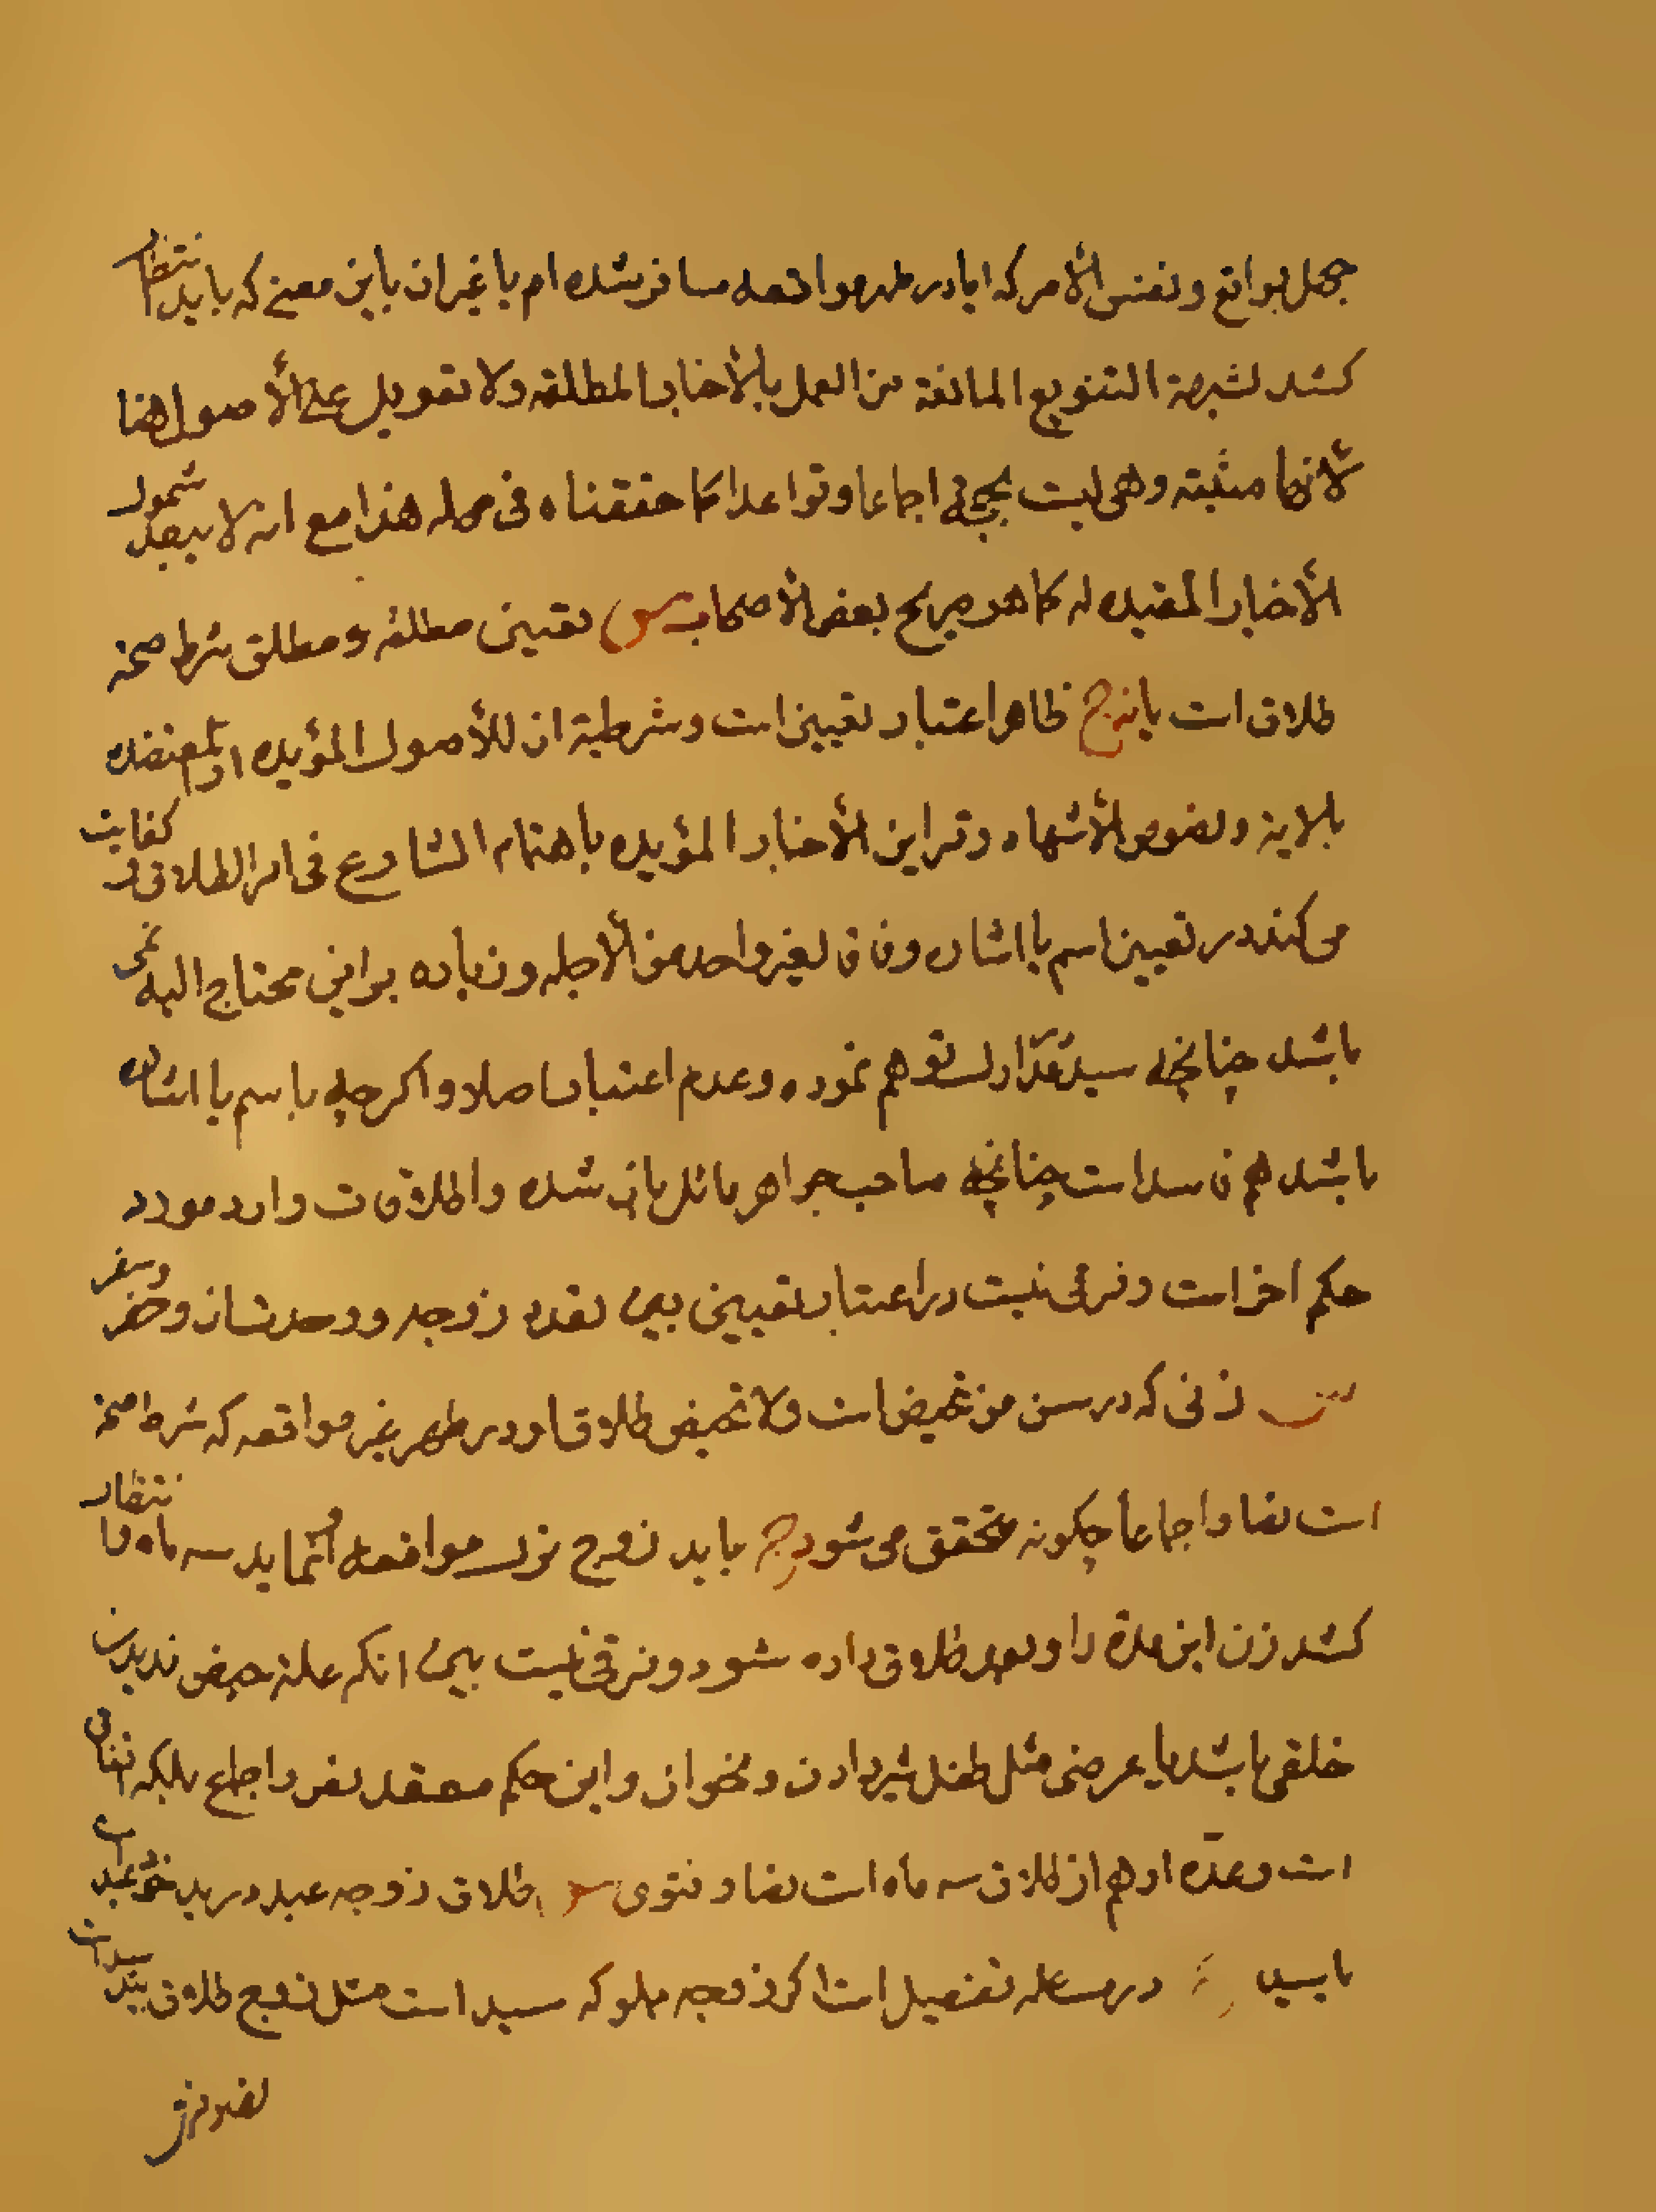 جهل بواقع و نفس الأمر که ایا در طهر مواقعه مسافر شده ام یا غیر ان باین معنے که باید انتظار
کشد لشبهة التنویع المانعة من العمل بالأخبار المطلقه ولا تعویل علی الأصول هنا
لأنها مثبته وهی لیست بحجة اجماعا و قواعدا کما حققناه فی محله هذا مع انه لا یبعد شمول
الأخبار المقیده له کما هو صریح بعض الأصحاب س تعیین مطلقه و مطلق شرط صحة
طلاق است یا نه ج ظاهرا اعتبار تعیین است و شرطیة ان للأصول المؤیده او المعتضده
بالایة و نصوص الأشهاد و قراین الأخبار المؤیده باهتمام الشارع فی امر الطلاق و کفایت
می کند در تعیین اسم یا اشاره وفاقا لغیر واحد من الأجله و زیاده بر این محتاج الیه نمی
باشد چنانچه سید مقدار توهم نموده و عدم اعتبار اصلا و اگر چه باسم یا اشاره
باشد هم فاسد است چنانچه صاحب جواهر مائل بان شده و اطلاقات وارد مورد
حکم اخر است و فرقی نیست در اعتبار تعیین بین تعدد زوجه و وحدتشان و حضر و سفر
س زنی که در سن من تحیض است ولا تحیض طلاق او در طهر غیر مواقعه که شرط صحة
است نصا و اجماعا چگونه متحقق می شود ج باید زوج ترک مواقعه نماید سه ماه تا انتظار
کشد زن این مدة را و بعد طلاق داده شود و فرقی نیست بین انکه علة حیض ندیدن
خلقی باشد یا عرضی مثل طفل شیر دادن و نحو ان و این حکم معقد نص و اجماع بلکه اتفاقی
است و عدّه او هم از طلاق سه ماه است نصا و فتوی س طلاق زوجه عبد در ید خود عبد است
یا سید ج در مسئله تفصیل است اگر زوجه مملوکه سید است مثل زوج طلاق بید سید است